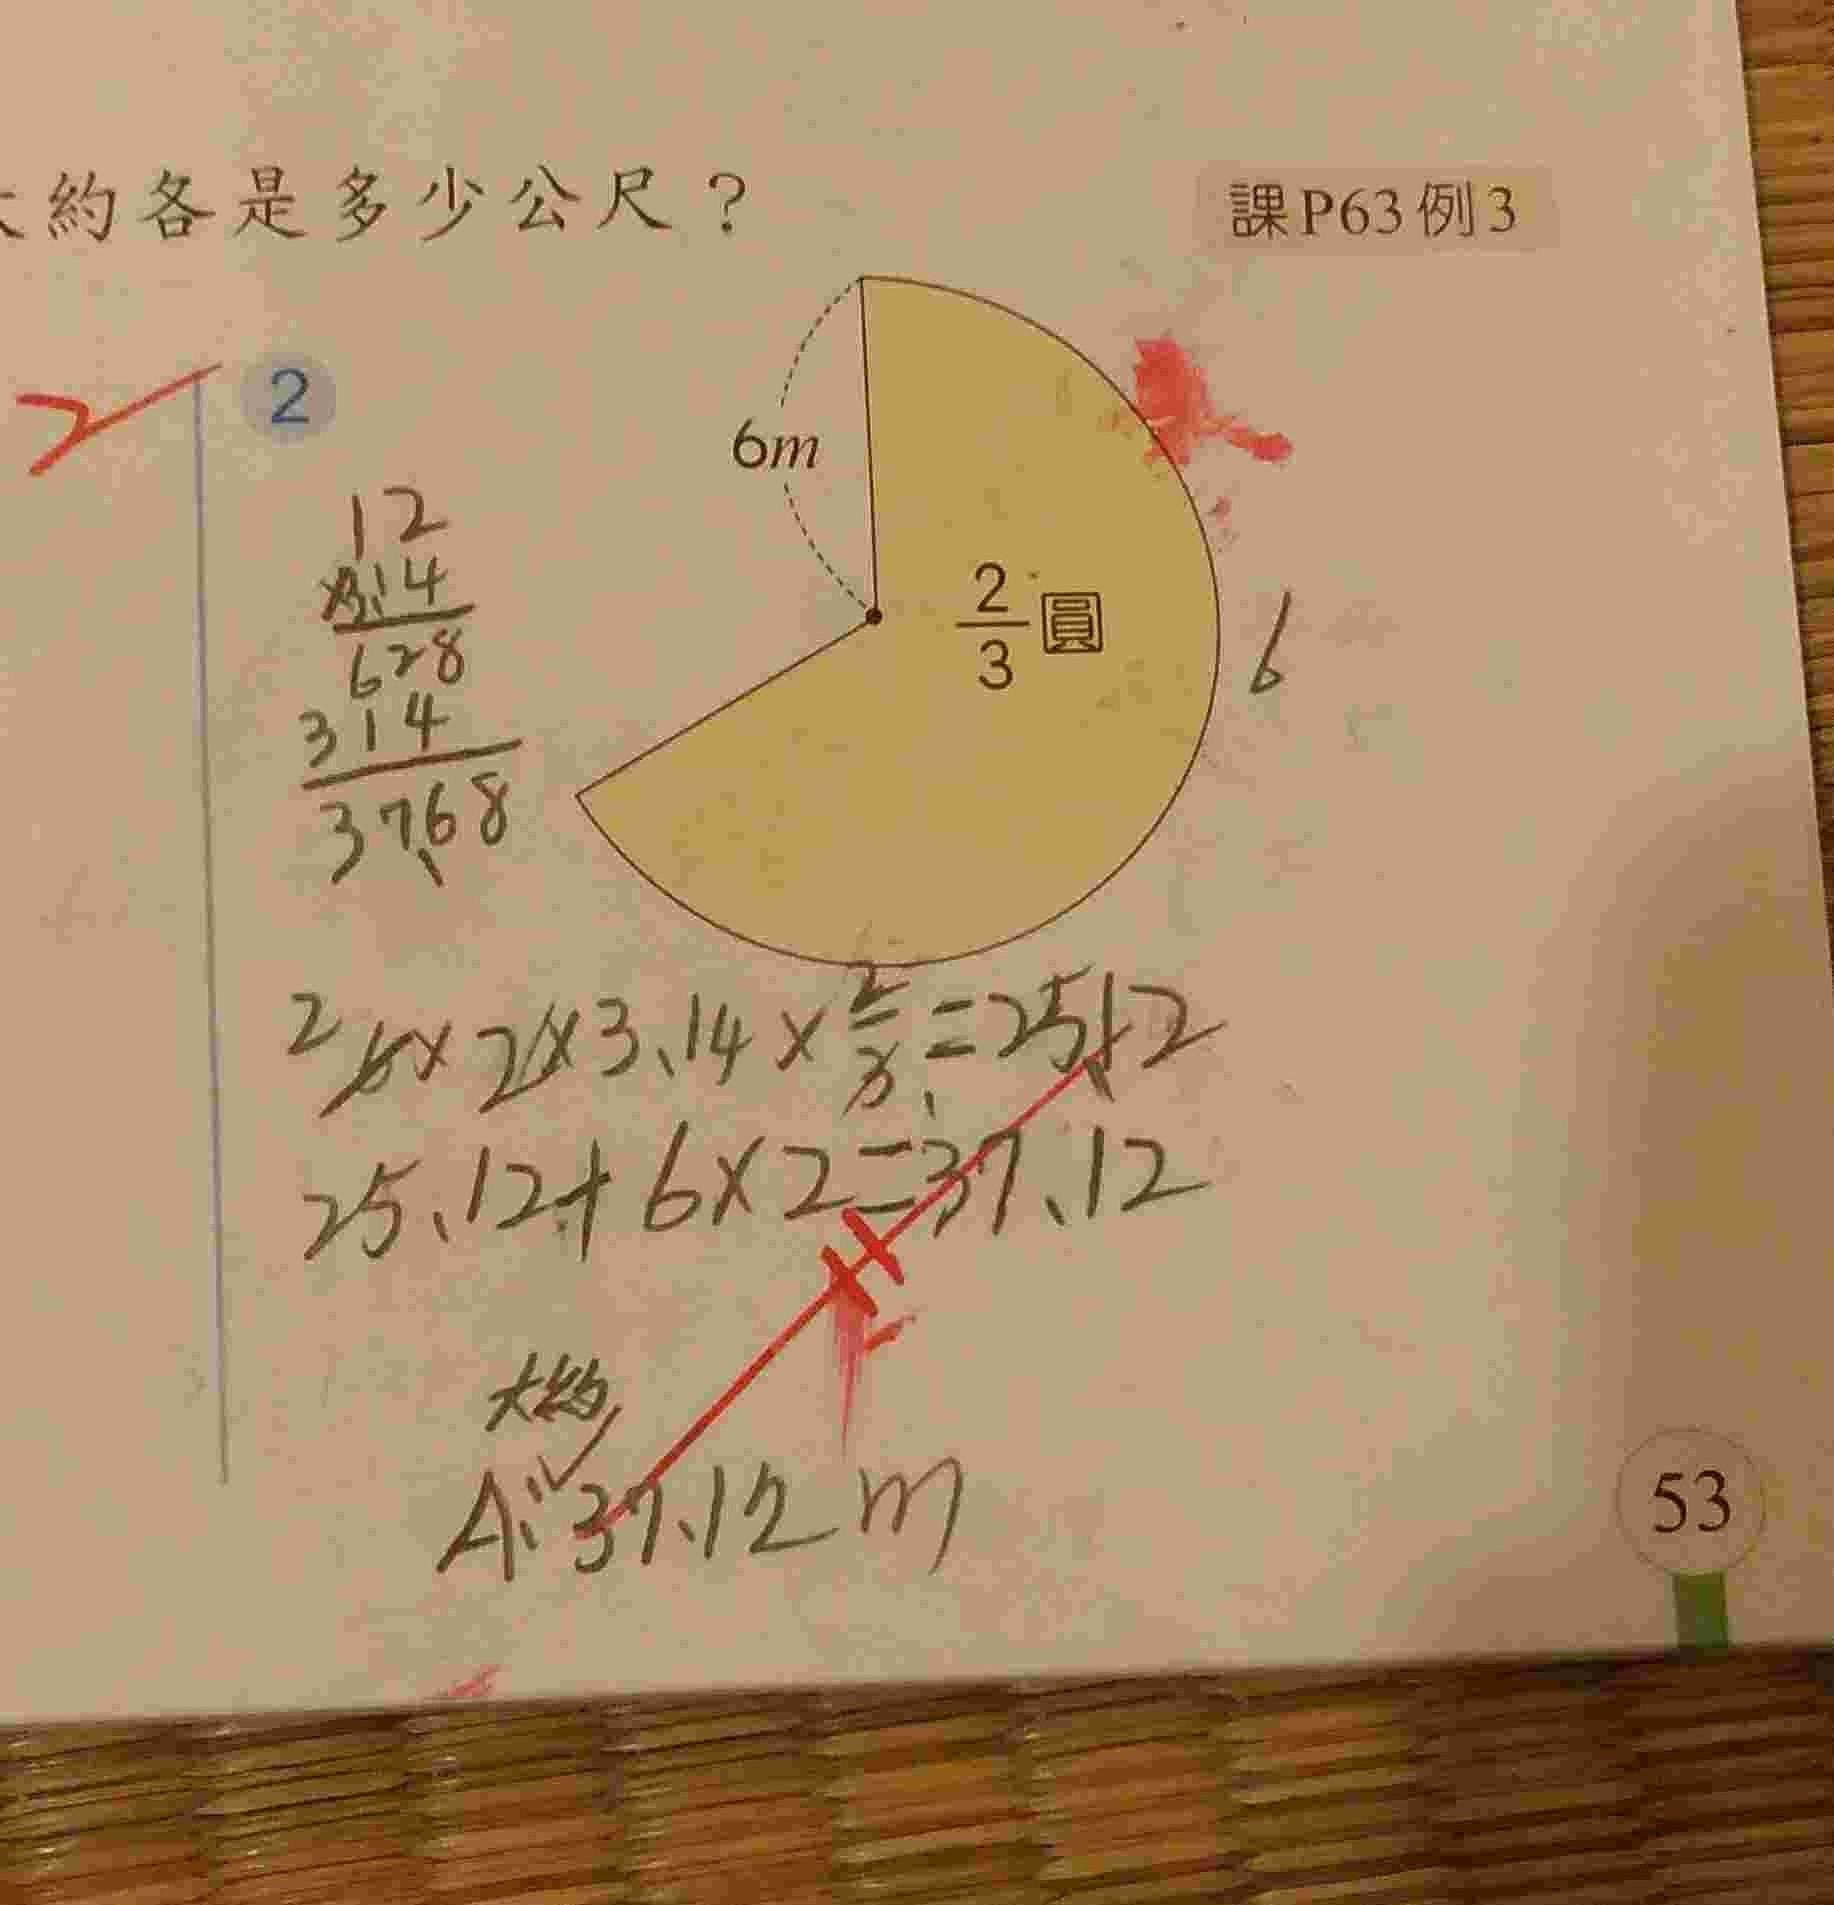 約各是多少公尺？
課P63例3
2
6m
2/3 圓
6
12
×3.14
628
314
37.68
6×2×3.14×2/3=25.12
25.12+6×2=37.12
大約
A:37.12m
53